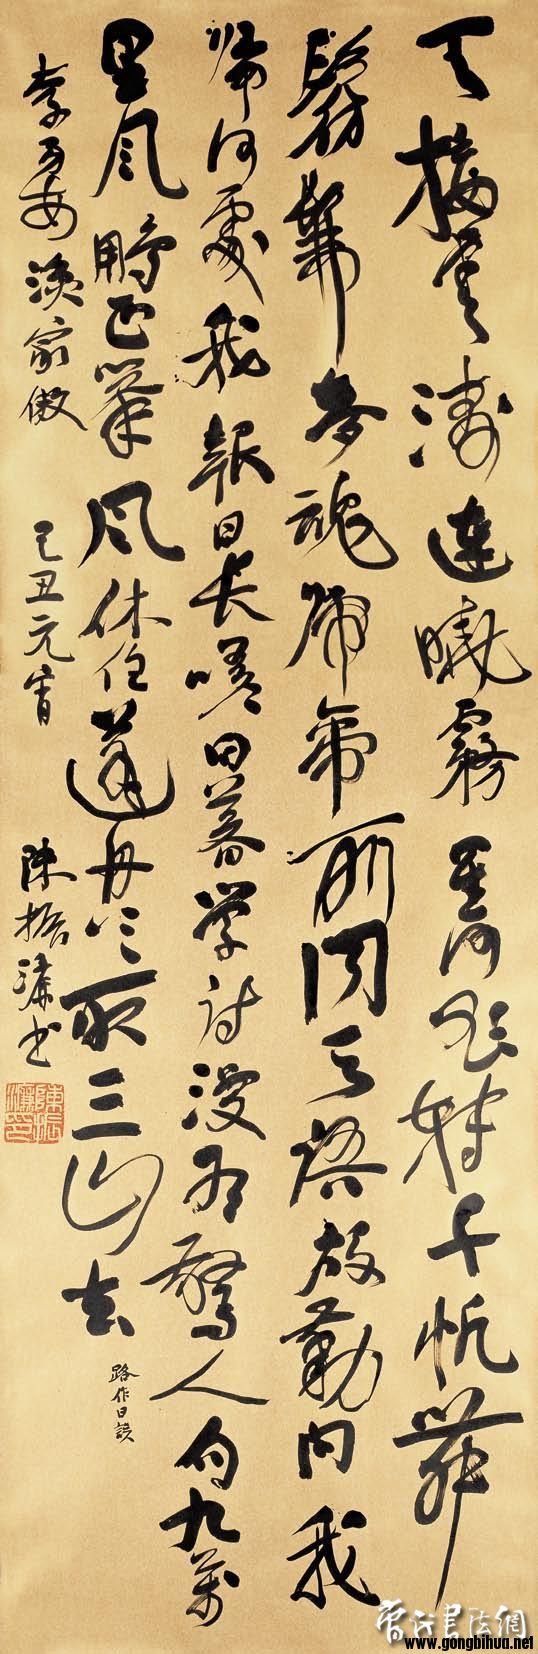 天接雲濤連曉霧星河欲轉千帆舞
髣髴夢魂歸帝所聞天語殷勤問我
歸何處我報日長嗟日暮學詩漫有驚人句九萬
里風鵬正舉風休住蓬舟吹取三山去
路作日誤
李易安漁家傲 己丑元宵 陳振濂書
陳振濂印
書法網
www.gongbihua.net